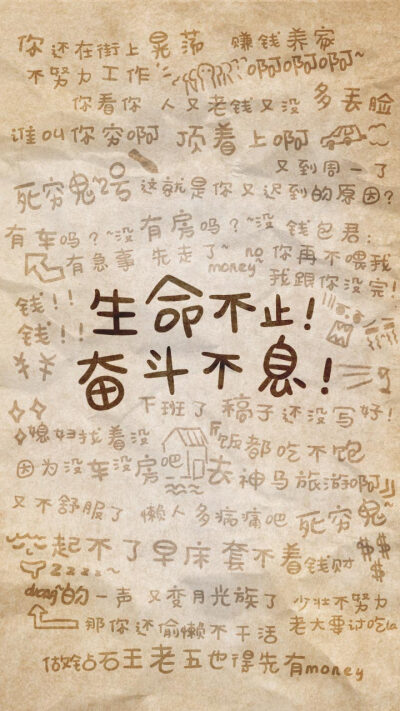 你还在街上晃荡 赚钱养家
不努力工作~ 啊啊啊啊~
你看你 人又老钱又没 多丢脸
谁叫你穷啊 顶着上啊
又到周一了
死穷鬼2号 这就是你又迟到的原因?
有车吗?~没 有房吗?~没 钱包君:
有急事 先走了~ no money~ 你再不喂我
我跟你没完!
钱!!
钱!!
生命不止!
奋斗不息!
下班了 稿子还没写好!
媳妇找着没 饭都吃不饱
因为没车没房吧 去神马旅游啊
又不舒服了 懒人多病痛吧 死穷鬼~
起不了早床套不着钱财 $$
zzzz~ $
duang的一声 又变月光族了 少壮不努力
那你还偷懒不干活 老大要讨吃la
做钻石王老五也得先有money